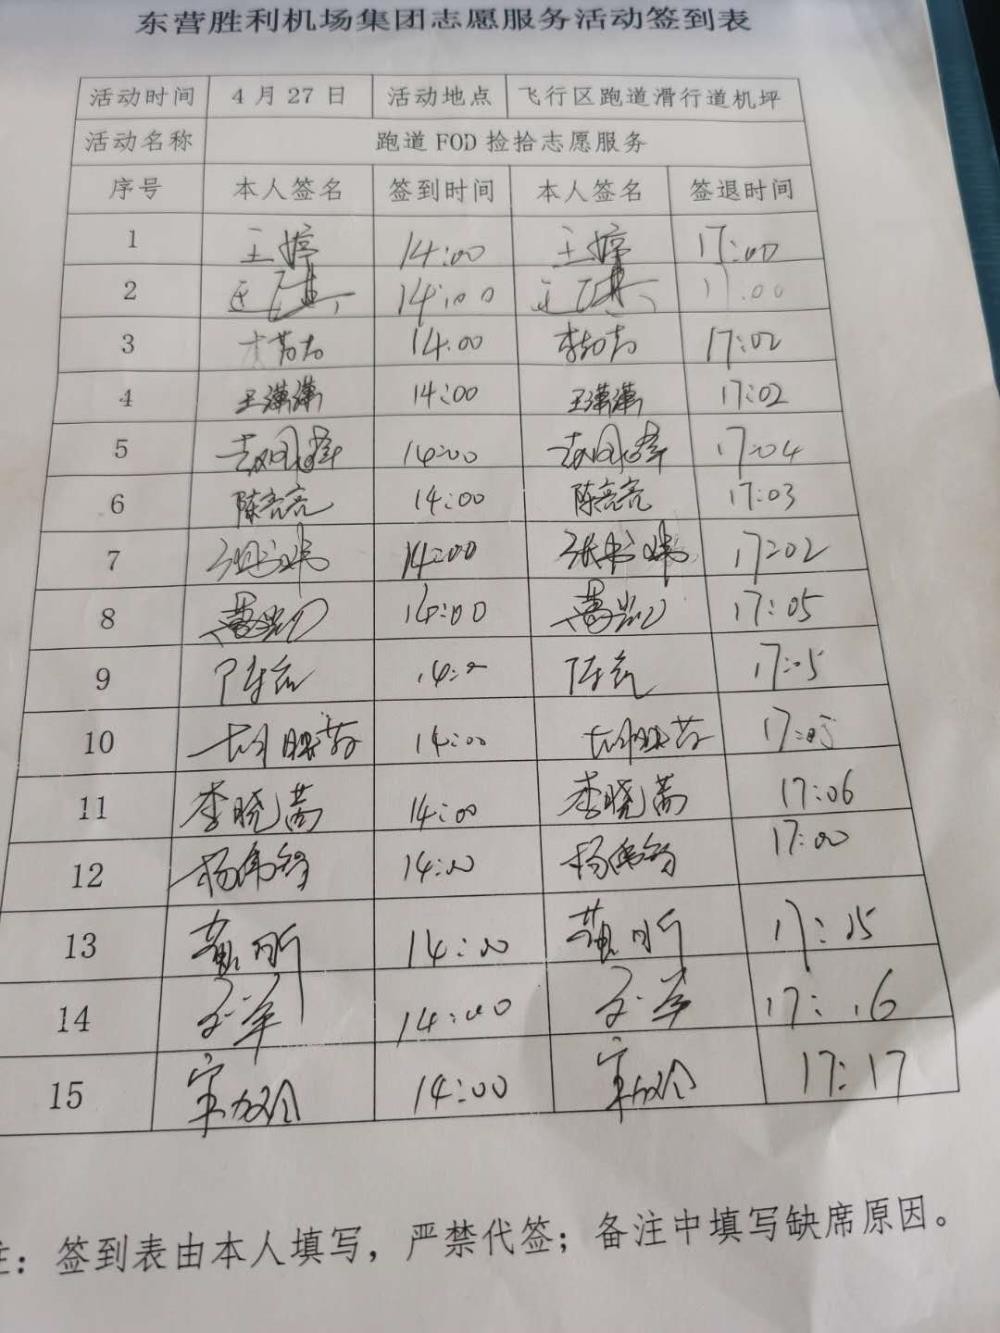 东营胜利机场集团志愿服务活动签到表
活动时间 4月27日 活动地点 飞行区跑道滑行道机坪
活动名称 跑道 FOD 捡拾志愿服务
序号 本人签名 签到时间 本人签名 签退时间
1 王婷 14:00 王婷 17:00
2 14:00 17:00
3 14:00 17:02
4 王潇潇 14:00 王潇潇 17:02
5 14:00 17:04
6 陈亮亮 14:00 陈亮亮 17:03
7 14:00 17:02
8 14:00 17:05
9 14:00 17:05
10 14:00 17:05
11 李晓菡 14:00 李晓菡 17:06
12 14:00 17:00
13 14:00 17:15
14 14:00 17:16
15 14:00 17:17
签到表由本人填写，严禁代签；备注中填写缺席原因。